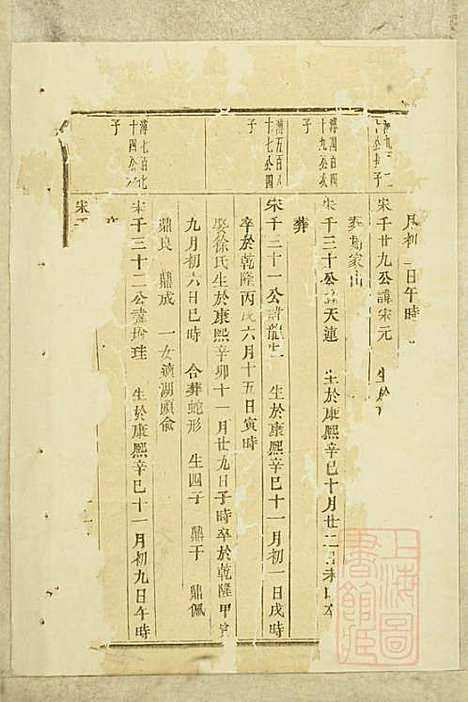 月初二日午時
宋千廿九公諱宋元 生於
葬 家山
淳四百四十九公次子
宋千三十公 天連 生於康熙辛巳十月廿二日未時 卒
葬
淳五百八十七公四子
宋千三十一公諱龍 生於康熙辛巳十一月初一日戌時
卒於乾隆丙戌六月十五日寅時
娶徐氏生於康熙辛卯十一月廿九日子時卒於乾隆甲寅
九月初六日巳時 合葬蛇形 生四子 鼎于 鼎佩
鼎良 鼎成 一女適湖頭俞
淳七百七十四公 子
宋千三十二公諱 珪 生於康熙辛巳十一月初九日午時
宋
上海圖書館藏